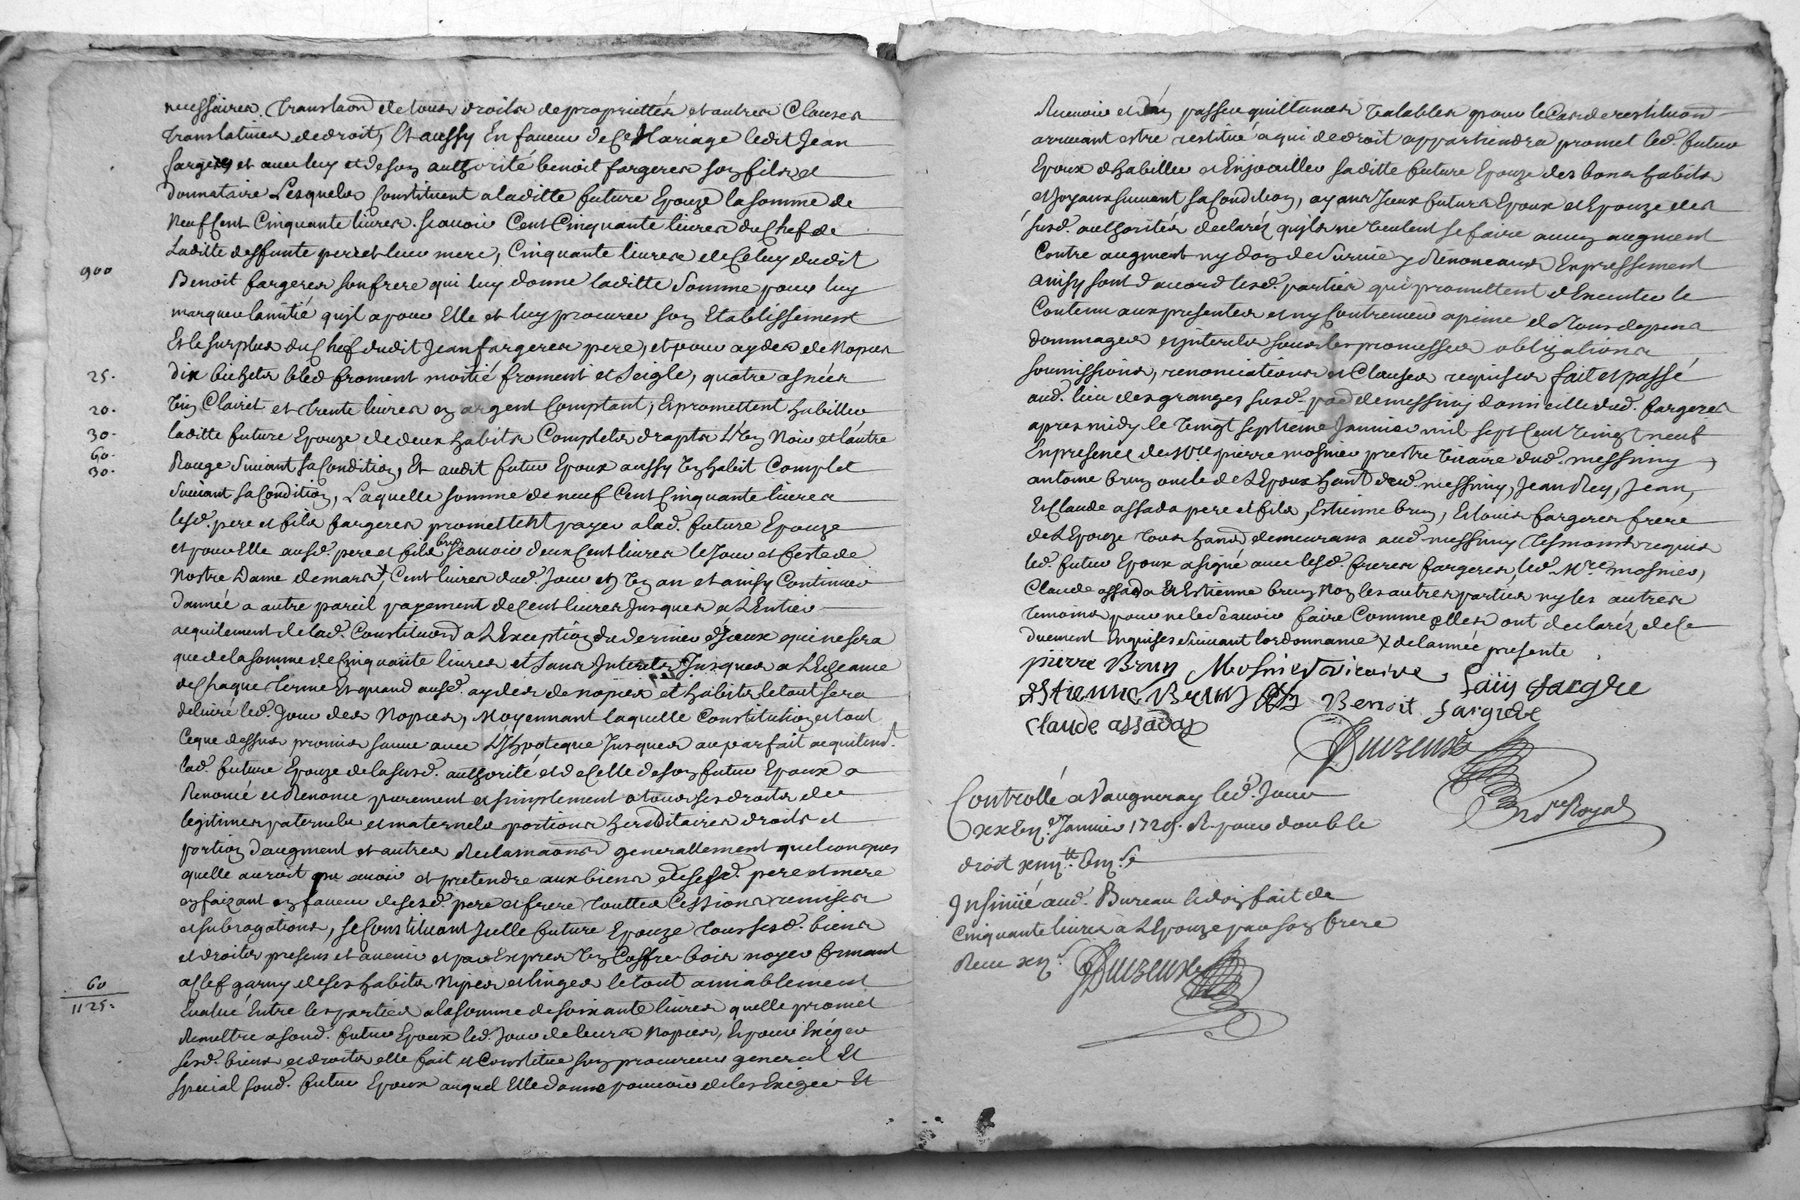 necessaires. Translaon de tous droits de propriettés et autres Clauses
Translatives de droit, Et aussy En faveur de Ce Mariage ledit Jean
fargere, et avec luy et de son authorité benoit fargeres son fils et
donnataire Lesquels Constituent a laditte future Epouze la somme de
Neuf Cent Cinquante livres. scauoir Cent Cinquante livres du Chef de
Laditte deffunte mere, Cinquante livres de Celuy dudit
900
Benoit fargeres son frere qui luy donne laditte Somme pour luy
marquer lamitié quil a pour Elle et luy procurer son Etablissement
Et le surplus du Chef dudit Jean fargeres pere, et pour aydes de Nopces
25.
dix bichets bled froment moitié froment et seigle, quatre asnées
20.
vin Clairet et trente livres en argent Comptant, Et promettent habiller
30.
laditte future Epouze de deux habits Complets draps L'un Noir et l'autre
60.
30.
Rouge Suivant sa Condition, Et audit futur Epoux aussy un habit Complet
Suivant sa Condition, Laquelle somme de neuf Cent Cinquante livres
lesd. pere et fils fargeres promettent payer a lad. future Epouze
et pour Elle ausd. pere et fils brun scauoir deux Cent livres le Jour et feste de
Nostre Dame de mars, Cent livres dud. Jour en un an et ainsy Continuer
dannée a autre pareil payement de Cent livres Jusques a L'Entier
aquitement de lad. Constituon a L'Exception du dernier d'jceux qui ne sera
que de la somme de Cinquante livres et sans Interets Jusques a L'Echeance
de Chaque terme Et quand ausd. aydes de nopces et habits le tout sera
deliuré led. Jour des Nopces, Moyennant laquelle Constitution et tout
Ce que dessus promis sauue auec L'hypoteque Jusques au parfait aquitemt.
lad. future Epouze de la susd. authorité et de Celle de son futur Epoux a
Renoncé et Renonce purement et simplement a tous ses droits de
legitimes paternels et maternels portions hereditaires droits et
portion d'augment et autres Reclamaons generallement quelconques
quelle auroit pu auoir et pretendre aux biens de sesd. pere et mere
en faizant en faueur de sesd. pere et frere touttes Cessions remises
et subrogations, se Constituant Jcelle future Epouze tous sesd. biens
et droits presens et auenir et par Exprés un Coffre bois noyer fermant
60
a clef garny de ses habits nipes et linges le tout amiablement
1125.
Eualué Entre les parties a la somme de soixante livres quelle promet
Remettre a sond. futur Epoux led. Jour de leurs Nopces, Et pour Exiger
sesd. biens et droits elle fait et Constitue son procureur general Et
special sond. futur Epoux auquel Elle donne pouuoir de les Exiger Et
Receuoir et d'en passer quittances valables pour le Cas de restituon
arriuant estre restitué a qui de droit appartiendra promet led. futur
Epoux d'habiller et Enjoailler saditte future Epouze des bons habits
et joyaux suiuant sa Condition, ayans Jceux futurs Epoux et Epouze des
susd. authorités declaréz quils ne veulent se faire aucun augment
Contre augment ny don de Suruie y Renonceans Expressement
ainsy sont d'accord lesd. parties qui promettent d'Executer le
Contenu aux presentes et ny Contreuenir a peine de tous depens
dommages et interets sous les promesses obligations
soumissions, renonciations et Clauses requises fait et passé
aud. lieu des granges susd. parr. de messimy domicille dud. fargeres
apres midy le vingt septieme Januier mil sept Cent vingt neuf
En presence de Mre pierre mosnier prestre vicaire dud. messimy
antoine brun oncle de L'Epoux hant. dud. messimy, Jean Rey, Jean,
Et Claude assada pere et fils, Estienne brun, Et louis fargeres frere
de L'Epouze tous hans. demeurans aud. messimy tesmoins requis
led. futur Epoux a signé auec lesd. freres fargeres, led. Mre mosnier,
Claude assada Et Estienne brun Non les autres parties ny les autres
temoins pour ne le scauoir faire Comme elles ont declaréz de Ce
duement Enquises suiuant lordonnance de lannée presente
pierre Brun Mosnier vicaire Loüis fargére
estienne Brun Benoit fargére
claude assada
Duizeux
Nre Royal
Controllé a Vaugneray led. Jour
Januier 1729. R. pour double
droit
Insinüé aud. Bureau le don fait de
Cinquante livres à L'Epouze par son frere
Receu
Duizeux